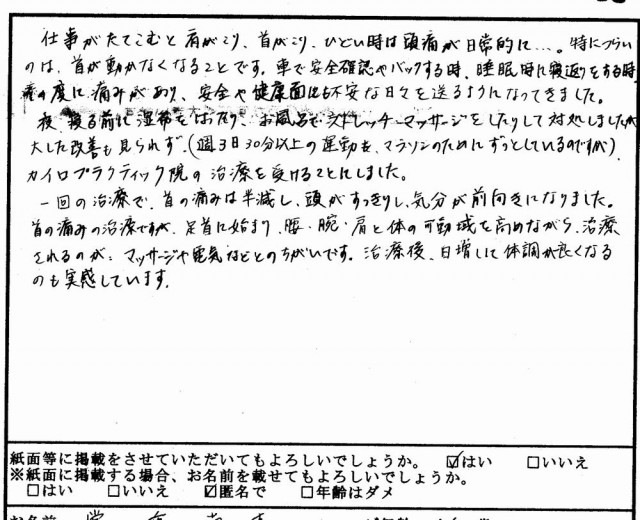 仕事がたてこむと肩がこり、首がこり、ひどい時は頭痛が日常的に…。特につらい
のは、首が動かなくなることです。車で安全確認やバックする時、睡眠時に寝返りをする時、
その度に痛みがあり、安全や健康面にも不安な日々を送るようになってきました。
夜、寝る前に湿布をはったり、お風呂でストレッチ・マッサージをしたりして対処しましたが
大した改善も見られず、(週3日30分以上の運動を、マラソンのためにずっとしているのですが)
カイロプラクティック院の治療を受けることにしました。
一回の治療で、首の痛みは半減し、頭がすっきりし、気分が前向きになりました。
首の痛みの治療ですが、足首に始まり、腰・腕・肩と体の可動域を高めながら、治療
されるのが、マッサージや電気などとのちがいです。治療後、日増しに体調が良くなる
のも実感しています。
紙面等に掲載をさせていただいてもよろしいでしょうか。 ☑はい □いいえ
※紙面に掲載する場合、お名前を載せてもよろしいでしょうか。
□はい □いいえ ☑匿名で □年齢はダメ